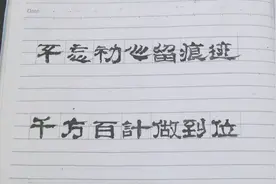 不忘初心留痕迹
千方百計做到位